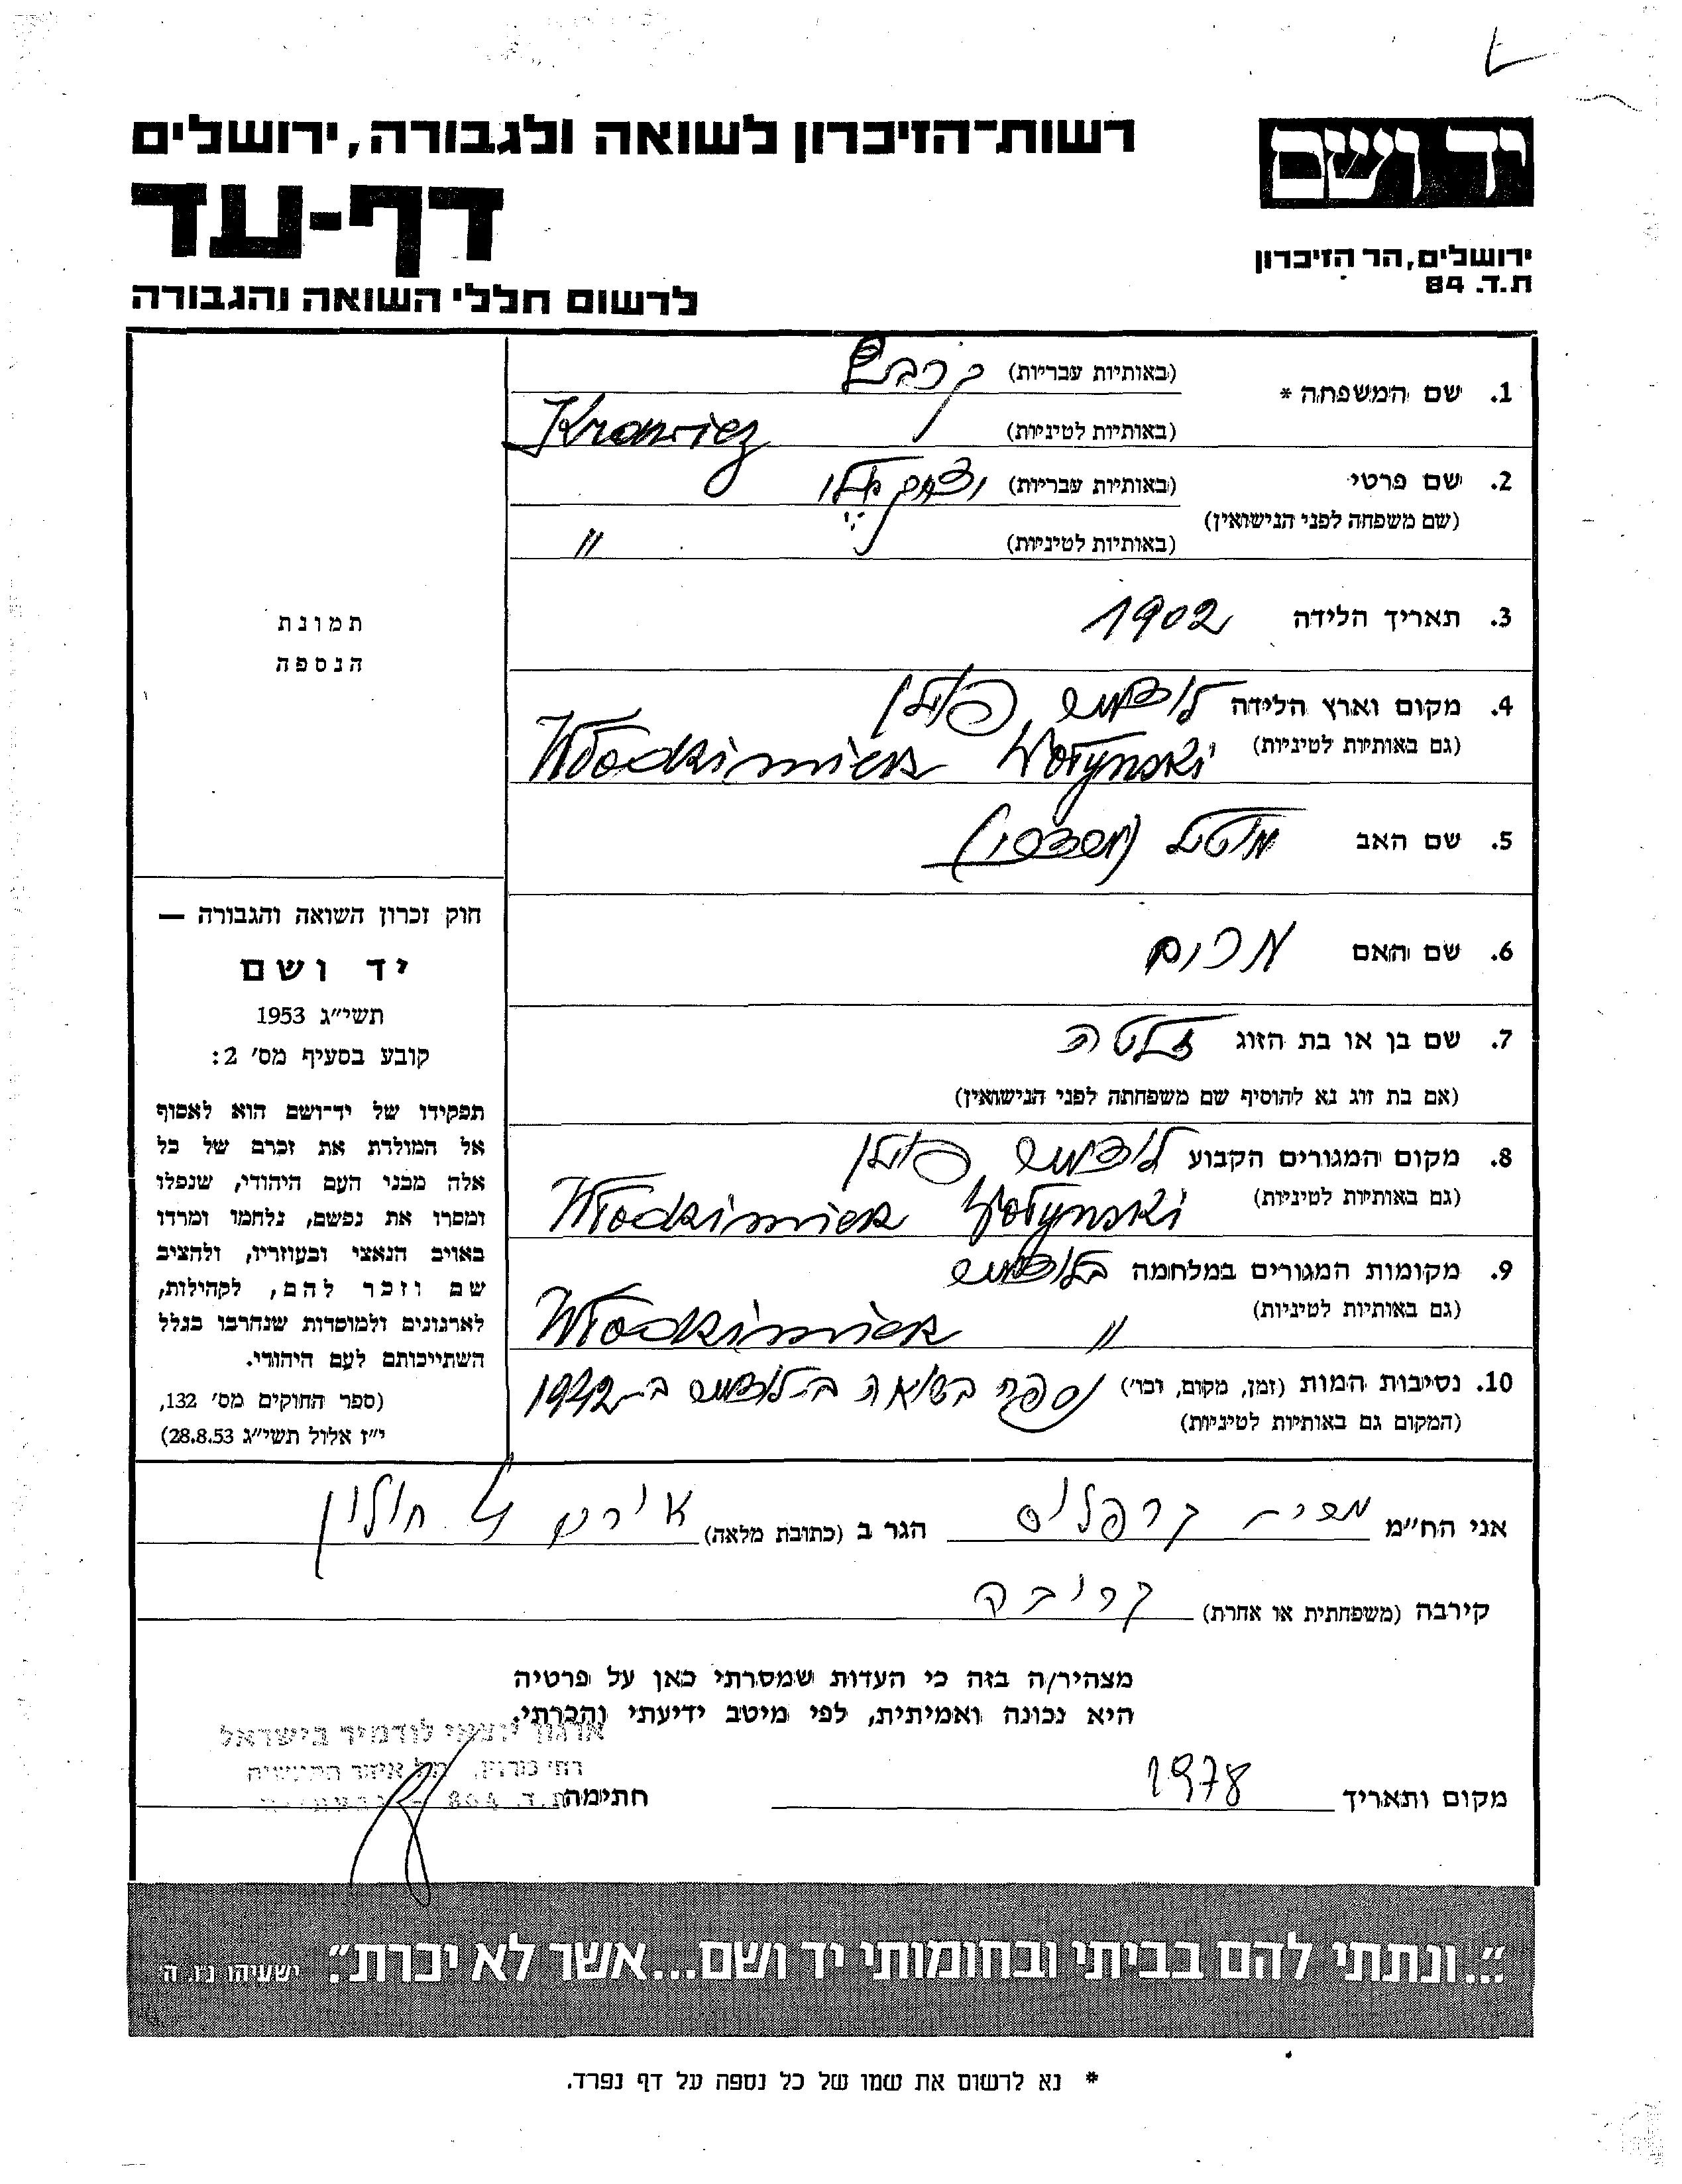 רשות־הזיכרון לשואה ולגבורה, ירושלים
יד ושם
דף-עד
ירושלים, הר הזיכרון
ת.ד. 84
לרשום חללי השואה והגבורה
1. שם המשפחה *
(באותיות עבריות)
(באותיות לטיניות) Krawiez
2. שם פרטי
(באותיות עבריות)
(שם משפחה לפני הנישואין)
(באותיות לטיניות) "
3. תאריך הלידה 1902
4. מקום וארץ הלידה לודמיר פולין
(גם באותיות לטיניות) Włodzimierz Wołynski
5. שם האב
6. שם האם מרים
7. שם בן או בת הזוג זלטה
(אם בת זוג נא להוסיף שם משפחתה לפני הנישואין)
8. מקום המגורים הקבוע לודמיר פולין
(גם באותיות לטיניות) Włodzimierz Wołynski
9. מקומות המגורים במלחמה בלודמיר
(גם באותיות לטיניות) Włodzimierz "
10. נסיבות המות (זמן, מקום, וכו') נספה בשואה ב-לודמיר ב-1942
(המקום גם באותיות לטיניות)
תמונת
הנספה
חוק זכרון השואה והגבורה —
יד ושם
תשי״ג 1953
קובע בסעיף מס׳ 2:
תפקידו של יד־ושם הוא לאסוף
אל המולדת את זכרם של כל
אלה מבני העם היהודי, שנפלו
ומסרו את נפשם, נלחמו ומרדו
באויב הנאצי ובעוזריו, ולהציב
שם וזכר להם, לקהילות,
לארגונים ולמוסדות שנחרבו בגלל
השתייכותם לעם היהודי.
(ספר החוקים מס׳ 132,
י״ז אלול תשי״ג 28.8.53)
אני הח״מ קרפלוס הגר ב (כתובת מלאה) 4 חולון
קירבה (משפחתית או אחרת) קרובה
מצהיר/ה בזה כי העדות שמסרתי כאן על פרטיה
היא נכונה ואמיתית, לפי מיטב ידיעתי והכרתי.
ארגון יוצאי לודמיר בישראל
מקום ותאריך 1978 חתימה
״...ונתתי להם בביתי ובחומותי יד ושם...אשר לא יכרת״. ישעיהו נו, ה׳
* נא לרשום את שמו של כל נספה על דף נפרד.